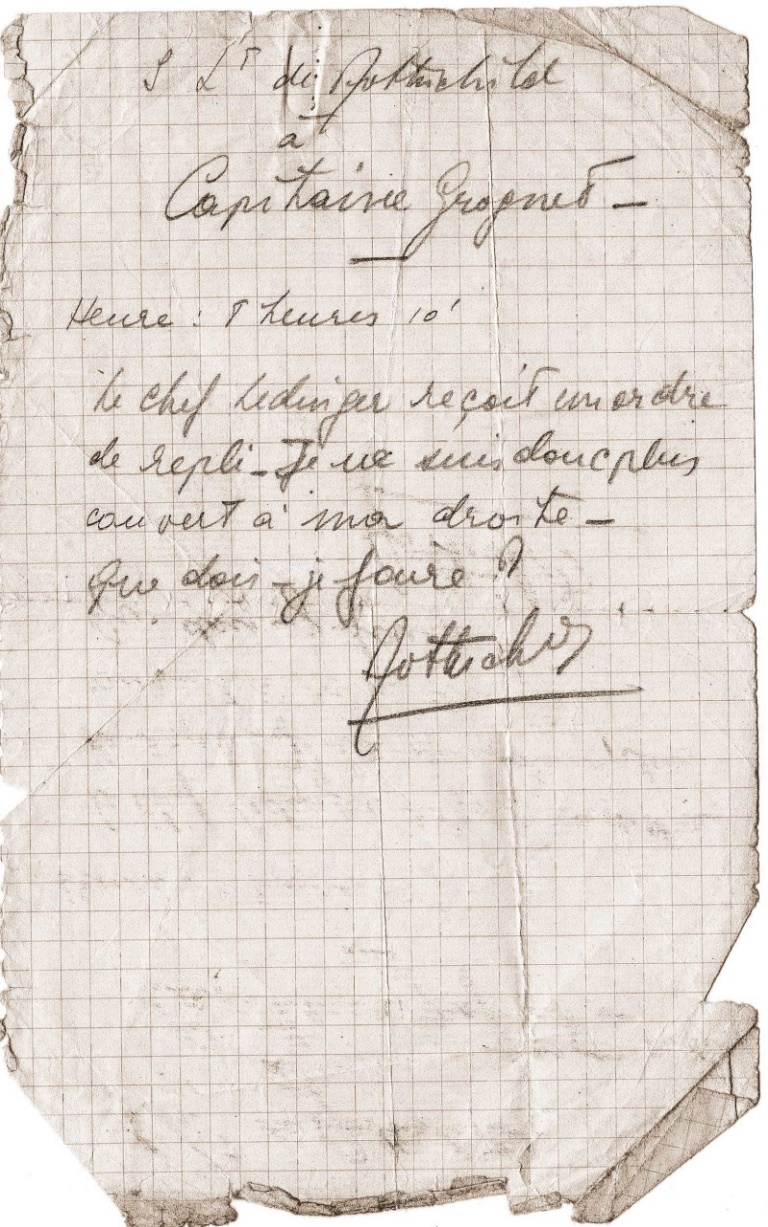 S Lt de Rothschild
à
Capitaine Grognet –
Heure : 5 heures 10'
Le chef Ledinger reçoit un ordre
de repli – Je ne suis donc plus
couvert à ma droite –
Que dois-je faire ?
Rothschild